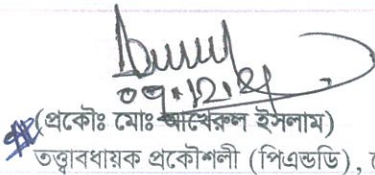 ০৭.১২.২১
(প্রকৌঃ মোঃ আখেরুল ইসলাম)
তত্ত্বাবধায়ক প্রকৌশলী (পিএন্ডডি),